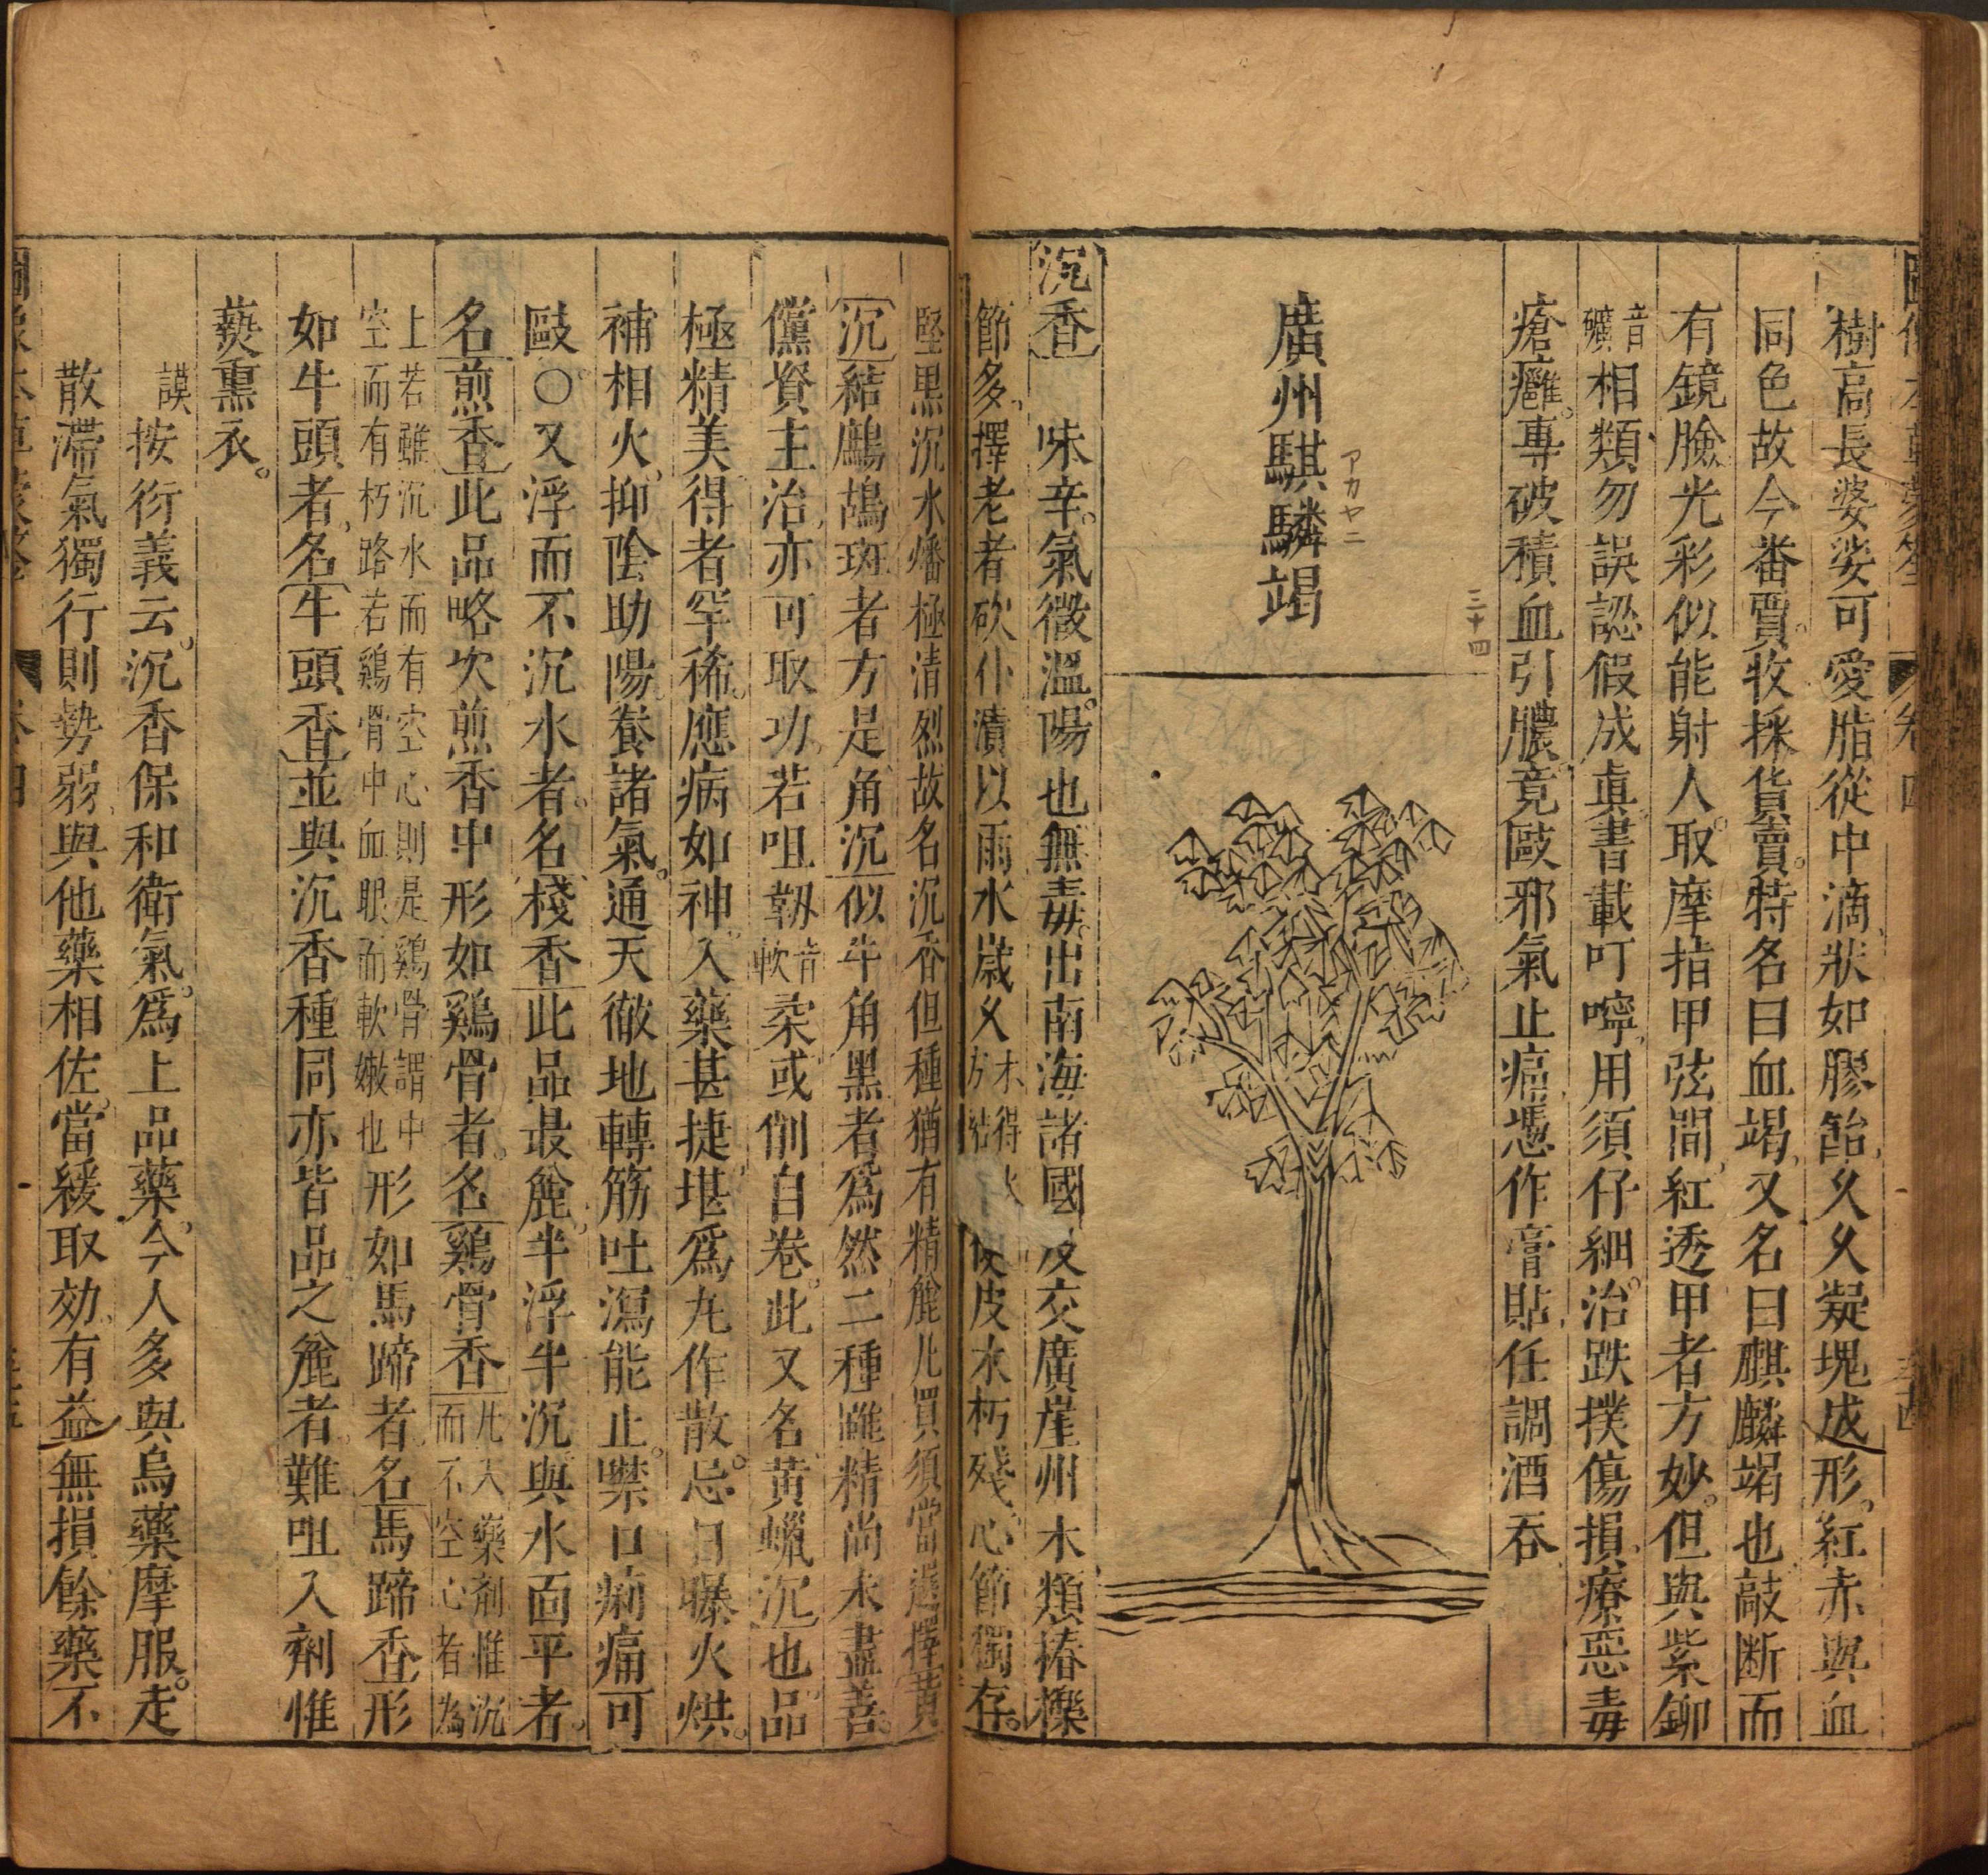 樹高長婆娑可愛脂從中滴狀如膠飴久久凝塊成形紅赤與血
同色故今番賈收採貨賣特名曰血竭又名曰麒麟竭也敲断而
有鏡臉光彩似能射人取摩指甲弦間紅透甲者方妙但與紫鉚
音礦相類勿誤認假成真書載叮嚀用須仔細治跌撲傷損療惡毒
瘡癰專破積血引膿竟敺邪氣止痛慿作膏貼任調酒吞
三十四
廣州騏驎竭
アカヤニ
沉香 味辛氣微溫陽也無毒出南海諸國及交廣崖州木類椿櫸
節多擇老者砍仆漬以雨水歲久木得水方結使皮木朽殘心節獨存
堅黑沉水燔極清烈故名沉香但種猶有精麄凡買須當選擇黃
沉結鷓鴣斑者方是角沉似牛角黑者爲然二種雖精尚未盡善
儻資主治亦可取功若咀韌音軟柔或削自卷此又名黃蠟沉也品
極精美得者罕稀應病如神入藥甚捷堪爲丸作散忌日曝火烘
補相火抑陰助陽養諸氣通天徹地轉筋吐瀉能止噤口痢痛可
敺○又浮而不沉水者名棧香此品最麄半浮半沉與水面平者
名煎香此品略次煎香中形如鷄骨者名鷄骨香凡入藥劑惟沉而不空心者為
上若雖沉水而有空心則是鷄骨謂中空而有朽路若鷄骨中血眼而軟嫩也形如馬蹄者名馬蹄香形
如牛頭者名牛頭香並與沉香種同亦皆品之麄者難咀入劑惟
爇熏衣
謨按衍義云沉香保和衛氣爲上品藥今人多與烏藥摩服走
散滯氣獨行則勢弱與他藥相佐當緩取効有益無損餘藥不